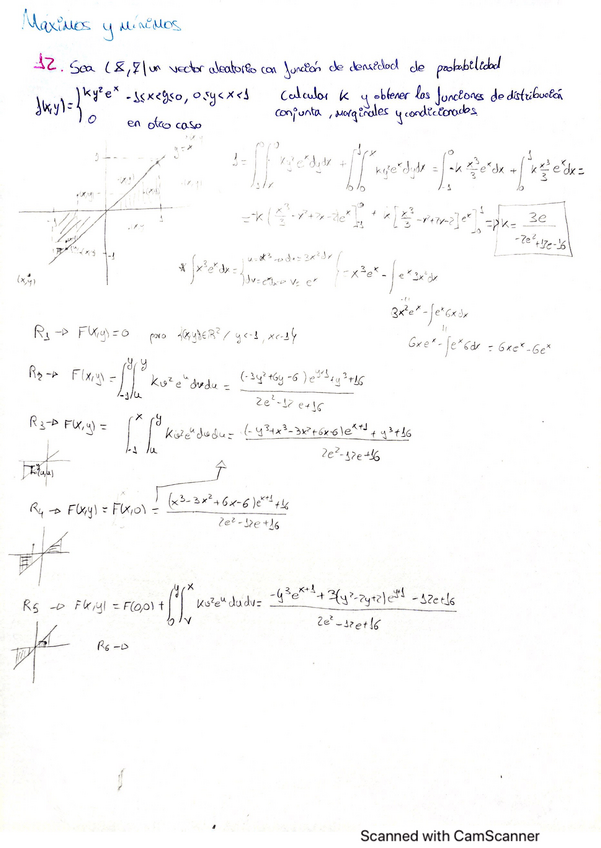 Máximos y mínimos
12. Sea (X,Y) un vector aleatorio con función de densidad de probabilidad
f(x,y) = { ky²eˣ -1≤x<y≤0, 0≤y<x<1 Calcular k y obtener las funciones de distribución
0 en otro caso conjunta, marginales y condicionadas.
y=x
1 = ∫₋₁⁰∫ₓ⁰ ky²eˣ dy dx + ∫₀¹∫₀ˣ ky²eˣ dy dx = ∫₋₁⁰ -k x³/3 eˣ dx + ∫₀¹ k x³/3 eˣ dx =
k = 3e / (-2e²+12e-16)
* ∫x³eˣdx = { u=x³ → du=3x²dx
dv=eˣdx → v=eˣ } = x³eˣ - ∫eˣ3x²dx
(x,y)
3x²eˣ - ∫eˣ6xdx
6xeˣ - ∫eˣ6dx = 6xeˣ - 6eˣ
R₁ → F(x,y)=0 para {(x,y)∈R² / y<-1, x<-1}
R₂ → F(x,y) = ∫₋₁ʸ∫ᵤʸ kv²eᵘ dv du = ((-3y²+6y-6)eʸ⁺¹+y³+16) / (2e²-12e+16)
R₃ → F(x,y) = ∫₋₁ˣ∫ᵤʸ kv²eᵘ dv du = ((-y³+x³-3x²+6x-6)eˣ⁺¹+y³+16) / (2e²-12e+16)
R₄ → F(x,y) = F(x,0) = ((x³-3x²+6x-6)eˣ⁺¹+16) / (2e²-12e+16)
R₅ → F(x,y) = F(0,0) + ∫₀ʸ∫ᵥˣ kv²eᵘ du dv = (-y³eˣ⁺¹+3(y²-2y+2)eʸ⁺¹-12e+16) / (2e²-12e+16)
R₆ →
Scanned with CamScanner